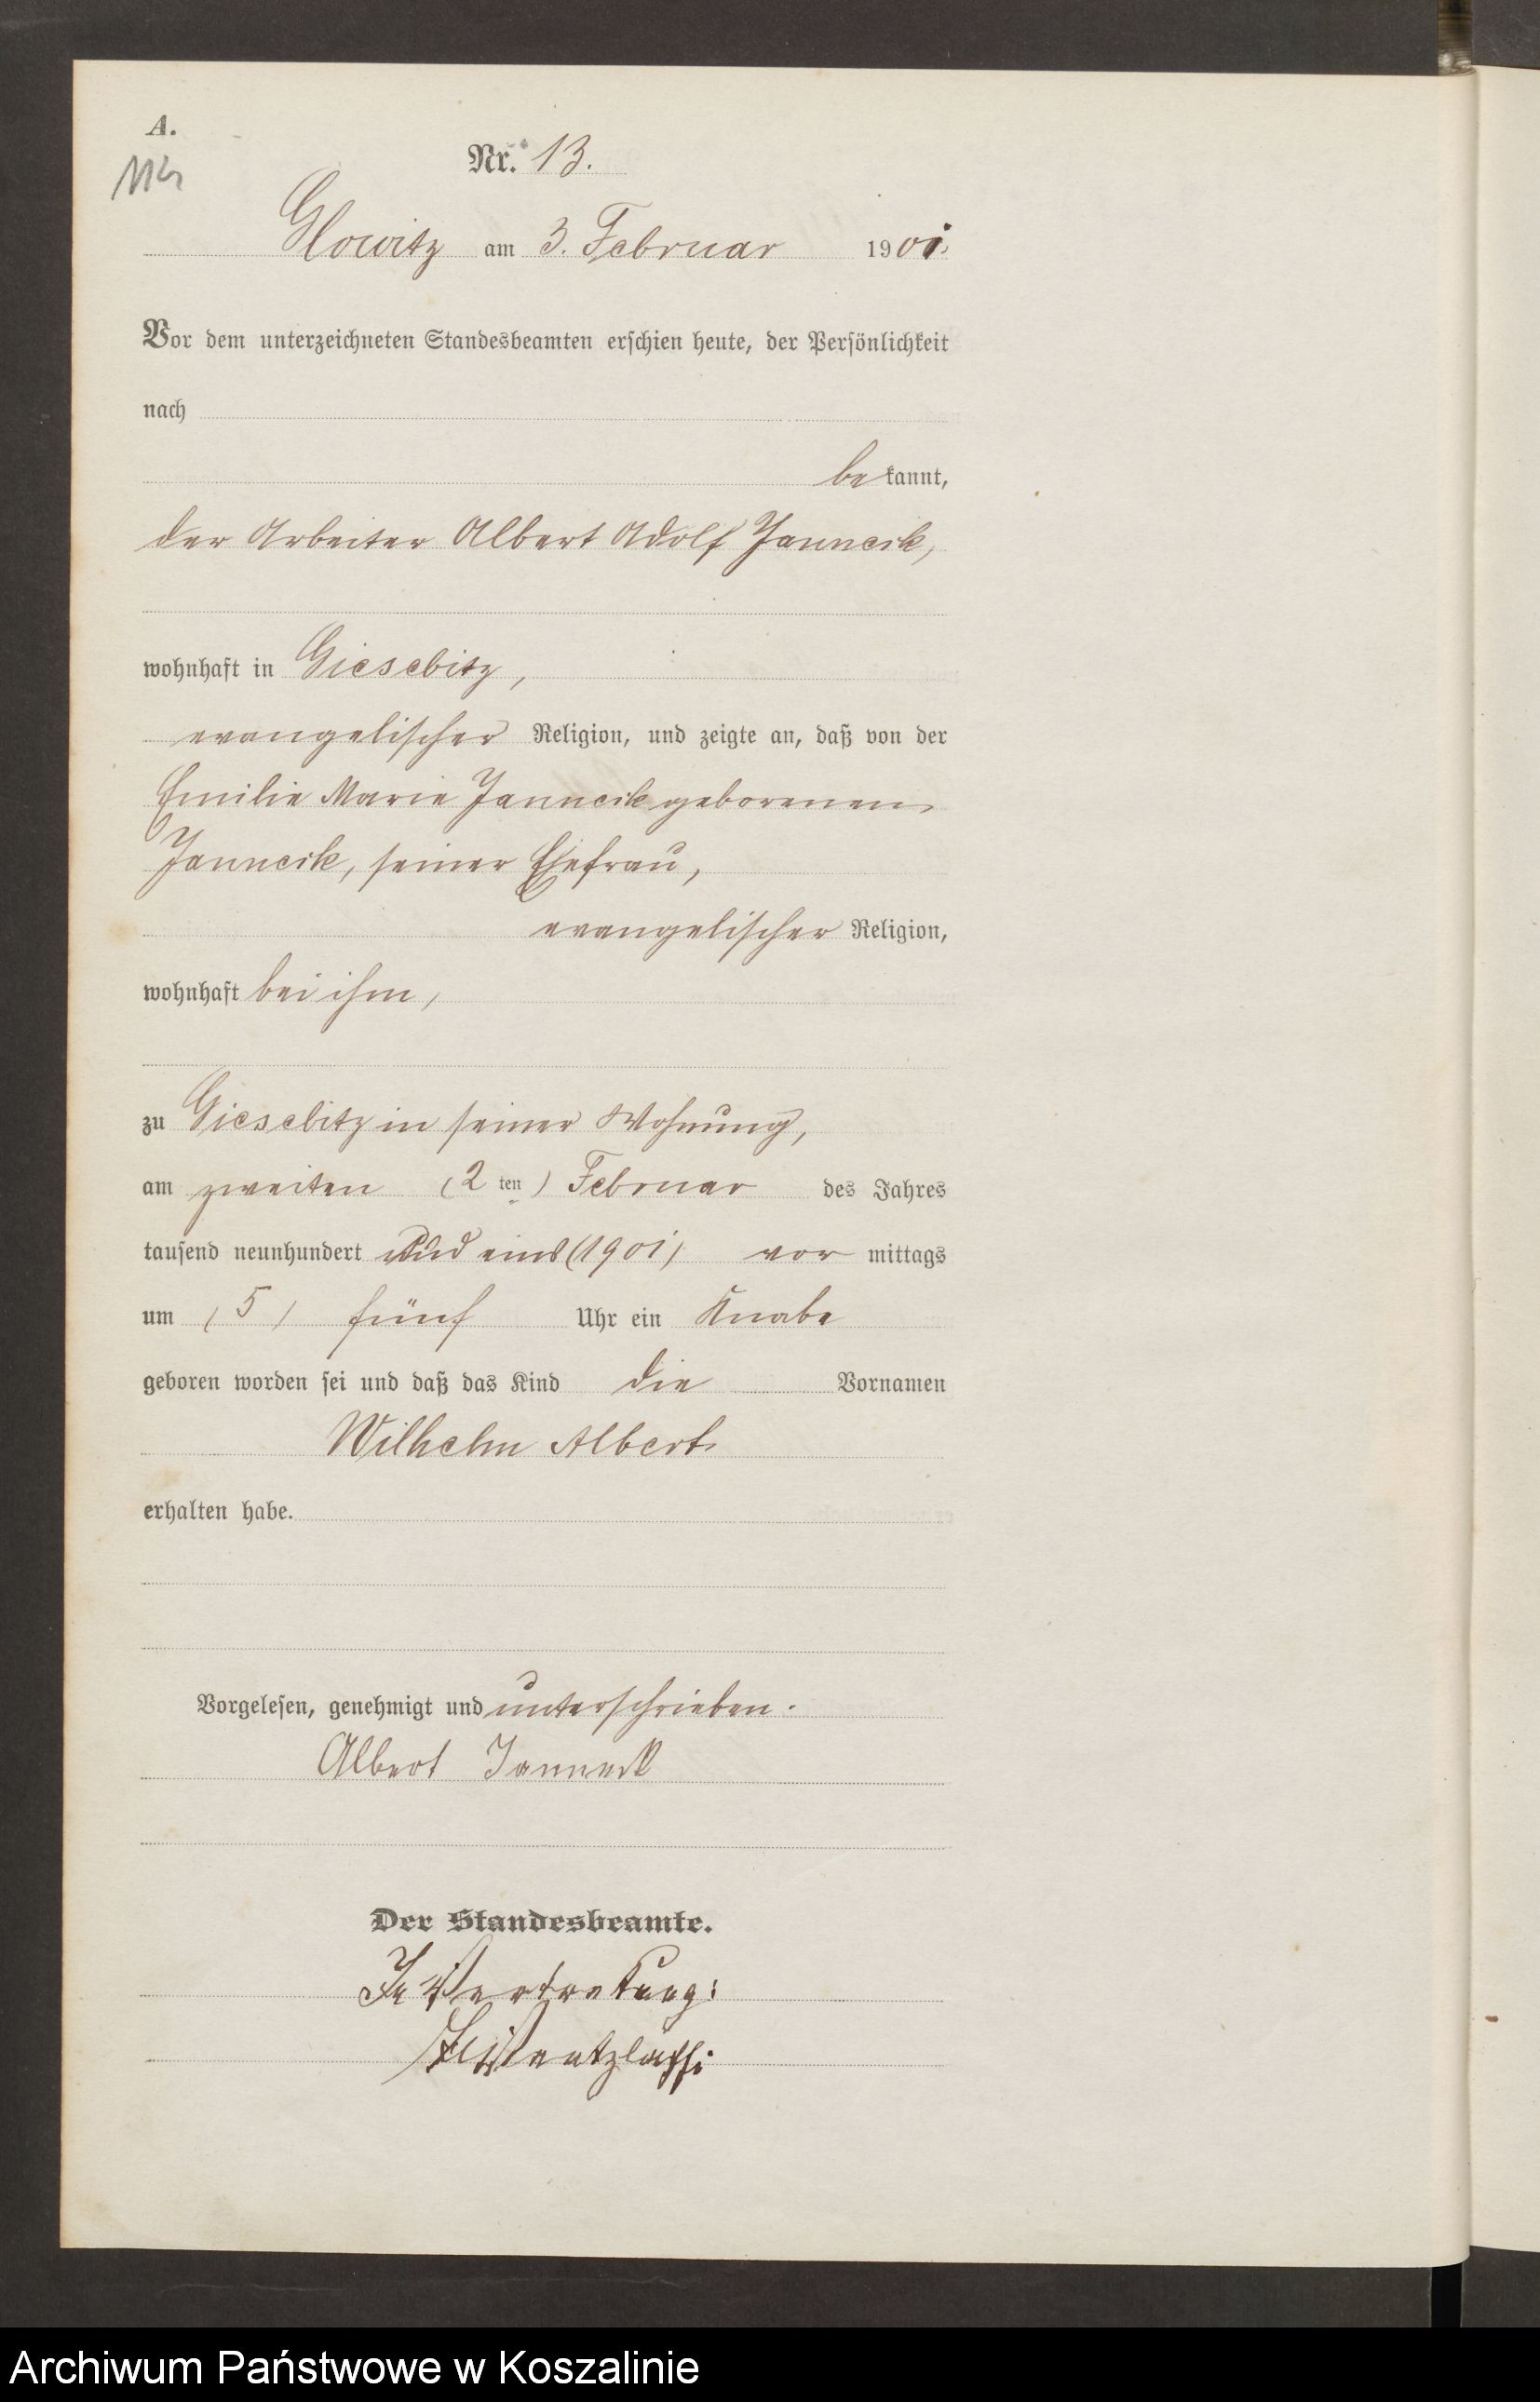 A.
Nr. 13.
Glowitz am 3. Februar 1901.
Vor dem unterzeichneten Standesbeamten erschien heute, der Persönlichkeit
nach
be kannt,
der Arbeiter Albert Adolf Janneck,
wohnhaft in Giesebitz,
evangelischer Religion, und zeigte an, daß von der
Emilie Marie Janneck geborenen
Janneck, seiner Ehefrau,
evangelischer Religion,
wohnhaft bei ihm,
zu Giesebitz in seiner Wohnung,
am zweiten (2 ten) Februar des Jahres
tausend neunhundert und eins (1901) vor mittags
um (5) fünf Uhr ein Knabe
geboren worden sei und daß das Kind die Vornamen
Wilhelm Albert
erhalten habe.
Vorgelesen, genehmigt und unterschrieben.
Albert Janneck
Der Standesbeamte.
In Vertretung:
Archiwum Państwowe w Koszalinie